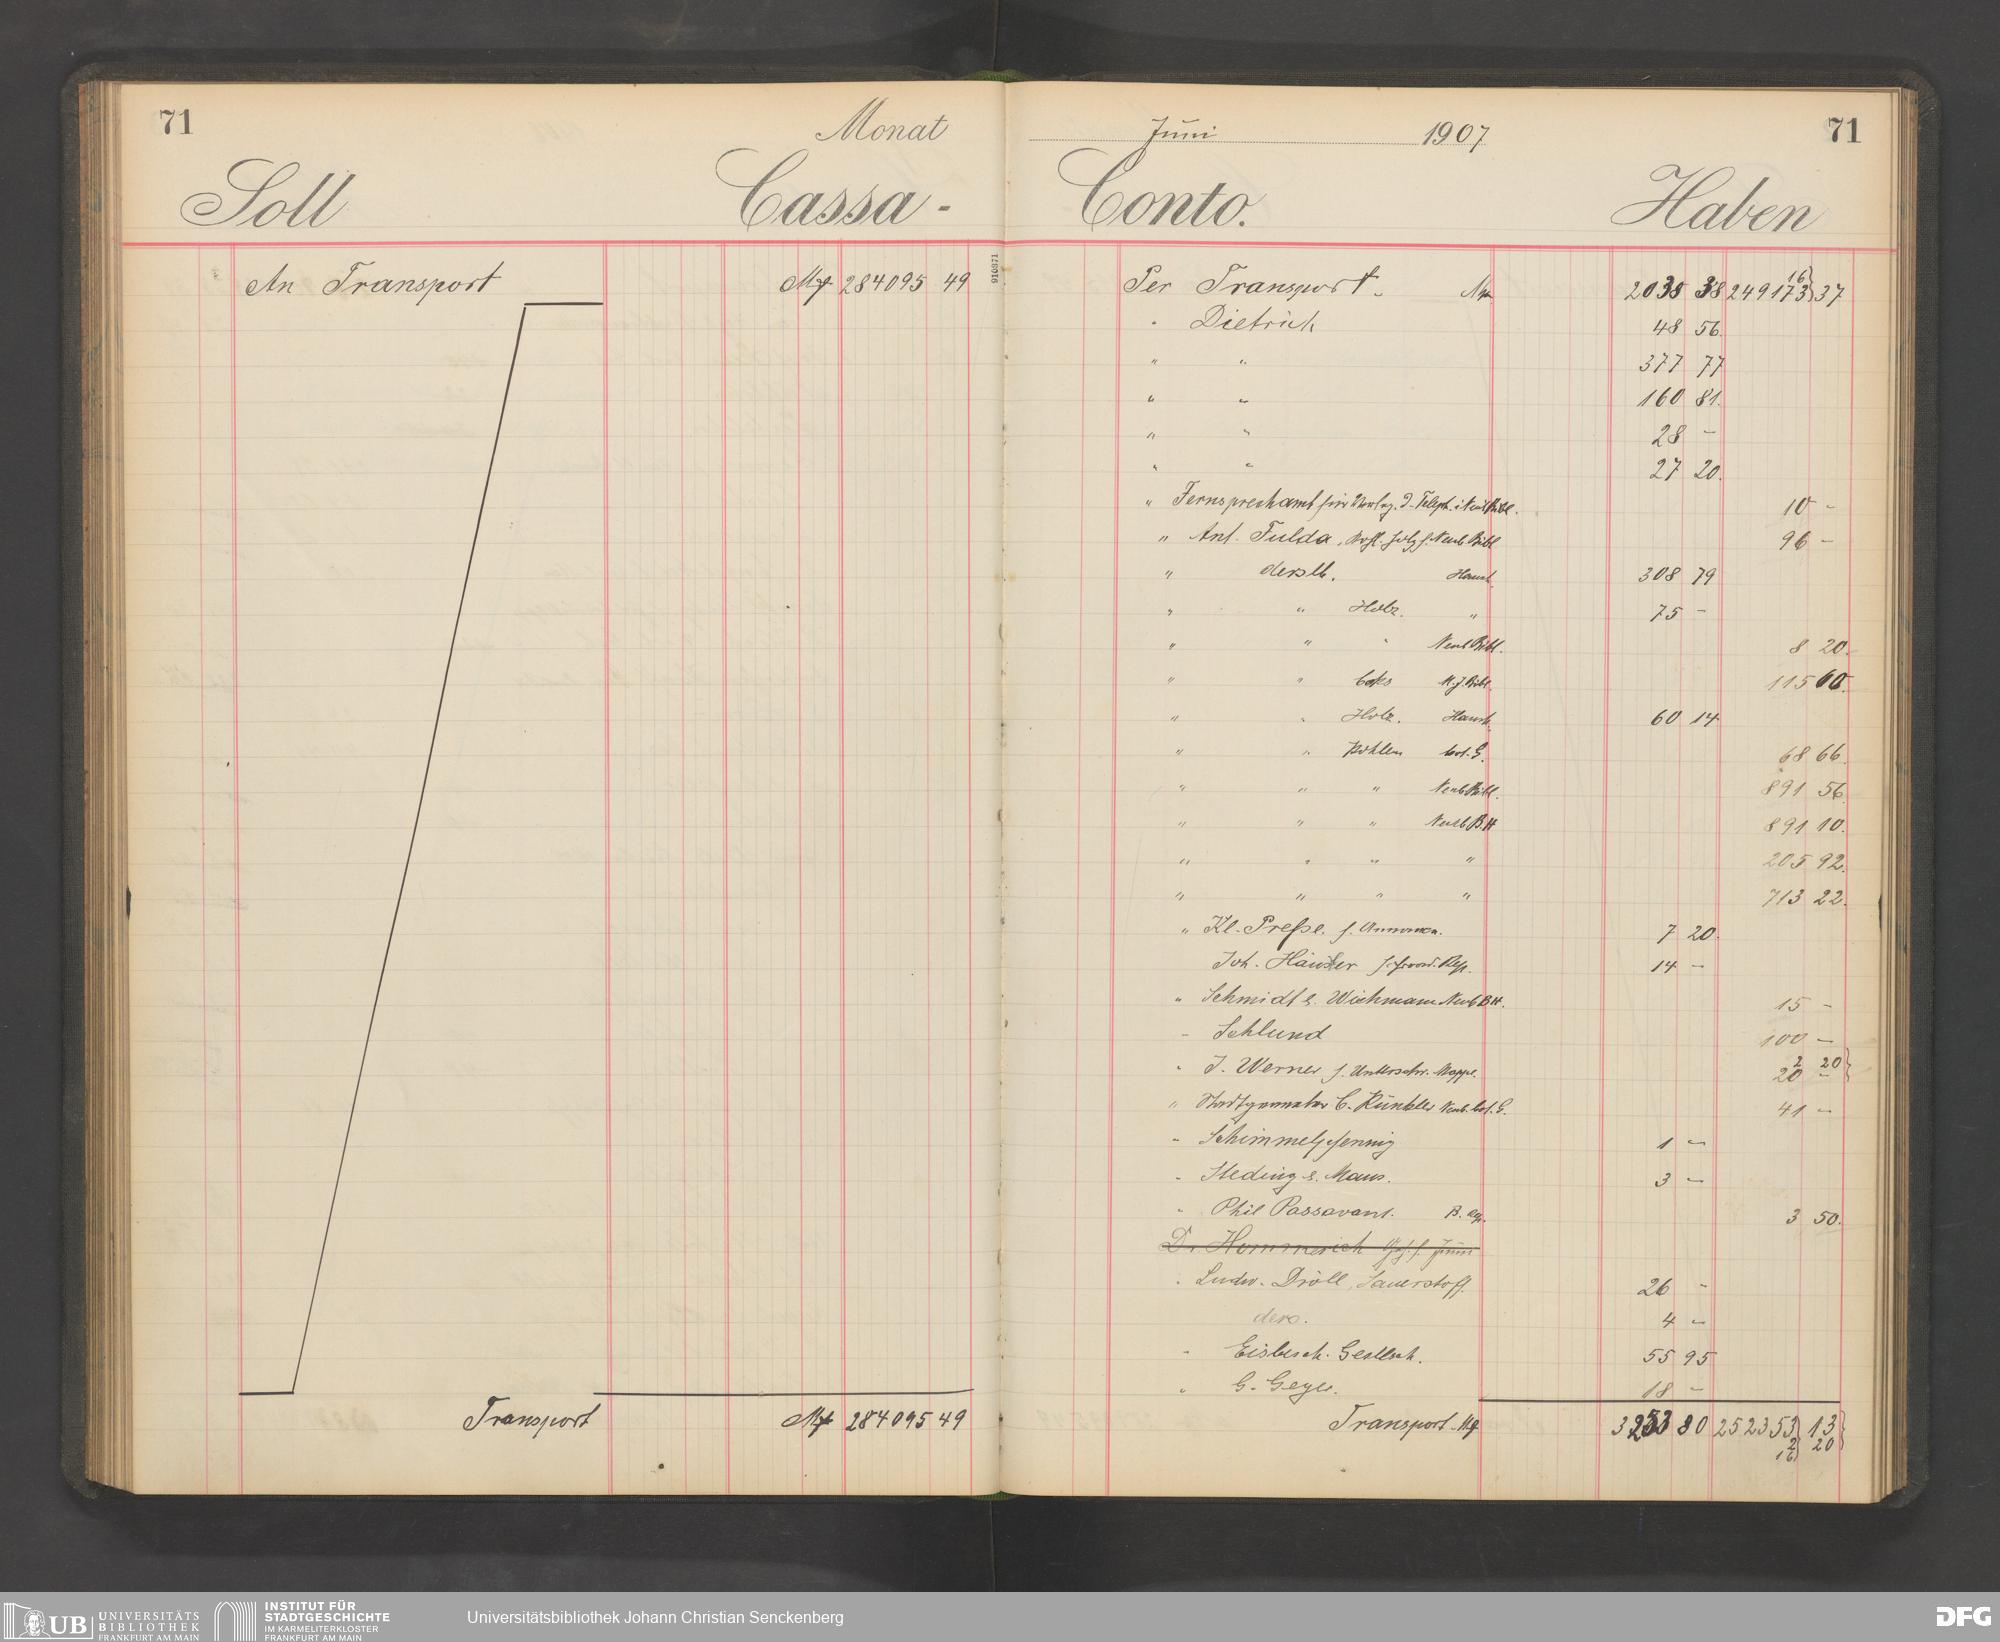 71
Monat
Juni 1907
71
Soll
Cassa - Conto.
Haben
An Transport M 284095 49
910371
Per Transport. 2035 38 249173 37
16
" Dietrich 48 56.
" " 377 77
" " 160 81.
" " 28 —
" " 27 20.
" Fernsprechamt für d. Teleph. i. Neub Bibl. 10 -
" Ant. Fulda, f. Neub Bibl 96 -
" derslb. Haush. 308 79
" " Holz. " 75 -
" " " Neub Bibl. 8 20.
" " Coks Bibl. 115 60.
" " Holz. Haush. 60 14
" " Kohlen bot. G. 68 66.
" " " Neub Bibl. 891 56.
" " " Neub B.H 891 10.
" " " " 205 92.
" " " " 713 22.
" Kl. Presse. f. Annoncen. 7 20.
Joh. Häuser 14 -
" Schmidt & Wichmann Neub B.H. 15 -
" Schlund 100 —
2 20
" J. Werner f. Unterschr. Mappe. 20 -
" C. Künkler Neub. bot. G. 41 -
" Schimmelpfennig 1 -
" Steding & Maus. 3 -
" Phil Passavant. 3 50.
Dr. Hommerich Juni
" Ludw. Dröll, Sauerstoff. 26 -
ders. 4 -
" Eisbesch. Gesllsch. 55 95
" G. Geyer. 18 -
Transport M 284095 49
Transport M 3253 80 252353 13
2 20
16
UB UNIVERSITÄTS
BIBLIOTHEK
FRANKFURT AM MAIN
INSTITUT FÜR
STADTGESCHICHTE
IM KARMELITERKLOSTER
FRANKFURT AM MAIN
Universitätsbibliothek Johann Christian Senckenberg
DFG